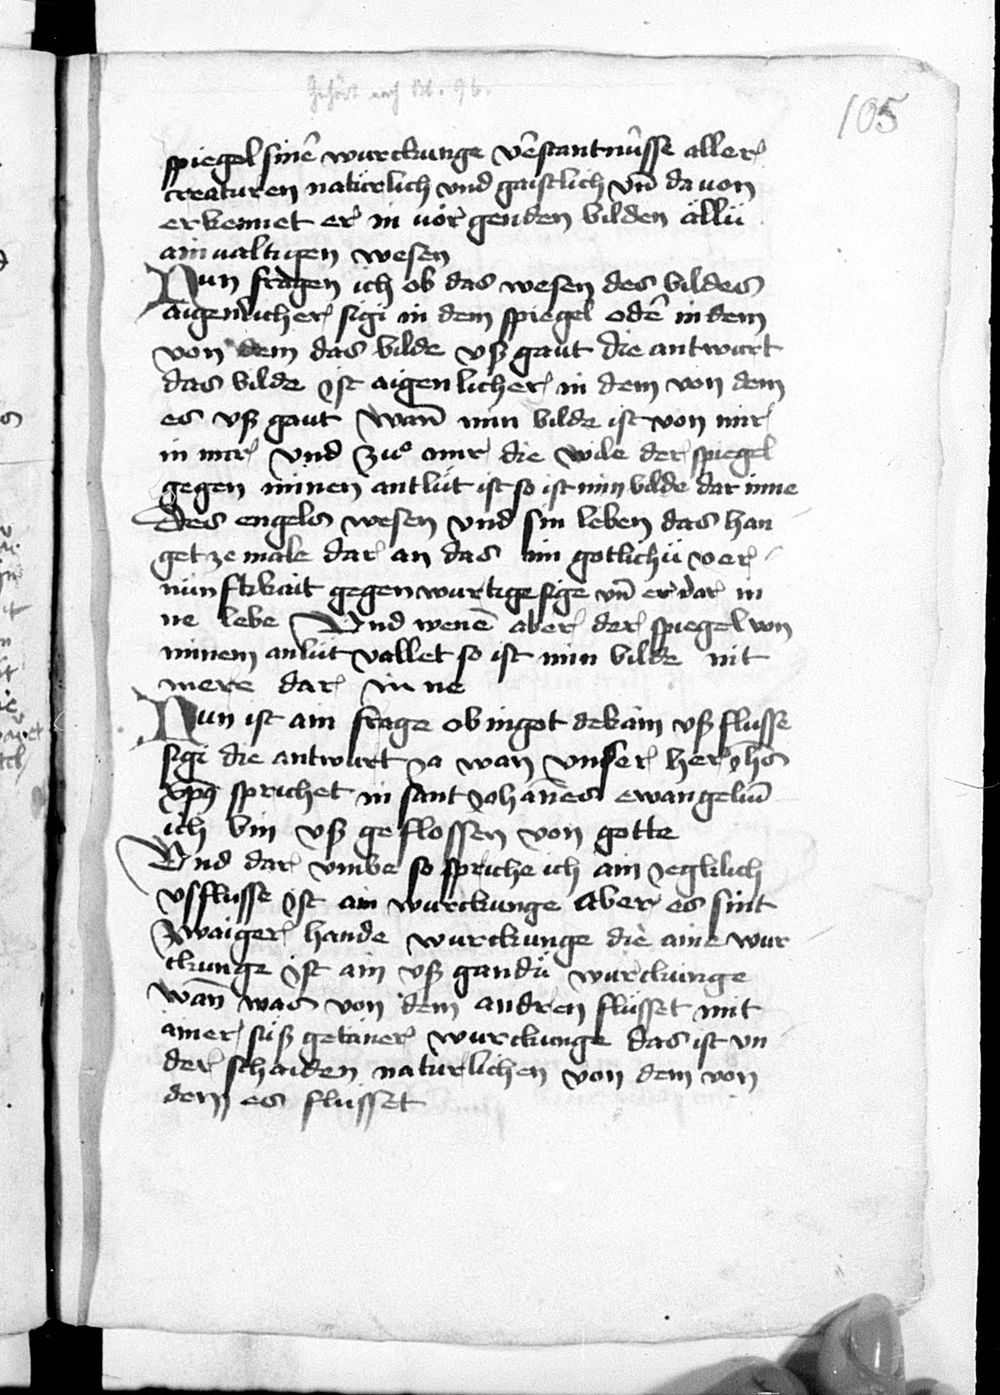 Gehört nach Bl. 96.
105
spiegel sinē wurckunge v̄estantnüsse aller
creaturen natürlich vnd gaistlich vn̄ da von
erkennet er in vor genden bilden ällü
ainualtigen wesen
Nun fragen ich ob das wesen des bildes
aigenlicher sigi in dem spiegel odē in dem
von dem das bilde vß gaut die antwurt
das bilde ist aigenlicher in dem von dem
es vß gaut wan̄ min bilde ist von mir
in mir vnd zuͦ mir die wile der spiegel
gegen minen antlüt ist so ist min bilde dar inne
Des engels wesen vnd sin leben das han
get ze male dar an das im gotlichü ver
nünftkait gegenwurtige sige vn̄ er dar in
ne lebe Vnd wenē aber der spiegel von
minem anlüt vallet so ist min bilde nit
mere dar in ne
Nun ist ain frage ob in got dekain vß flusse
sigi die antwurt Ja wan vnser her Jhs
xp̄s sprichet in sant Johan̄es ewangeliū
ich bin vß geflossen von gotte
Vnd dar vmbe so spriche ich ain Jegklich
vsflusse ist ain wurckunge Aber es sint
zwaiger hande wurckunge die aine wur
ckunge ist ain vß gandü wurckunge
wan̄ was von dem andren flüsset mit
ainer süß getäner wurckunge das ist vn
der schaiden naturlichen von dem von
dem es flusset